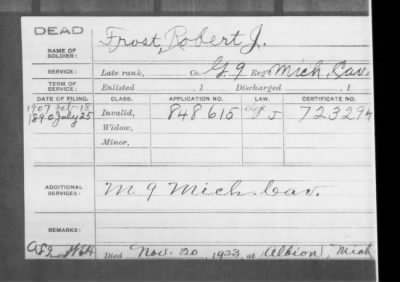 DEAD
NAME OF SOLDIER: Frost, Robert J.
SERVICE: Late rank, Co. G. 9 Reg't Mich. Cav.
TERM OF SERVICE: Enlisted , 1 Discharged , 1
DATE OF FILING. CLASS. APPLICATION NO. LAW. CERTIFICATE NO.
1907 Feb 18
1890 July 25 Invalid, 848615 J 723294
Widow,
Minor,
ADDITIONAL SERVICES: M 9 Mich. Cav.
REMARKS:
Died Nov. 20, 1923, at Albion, Mich